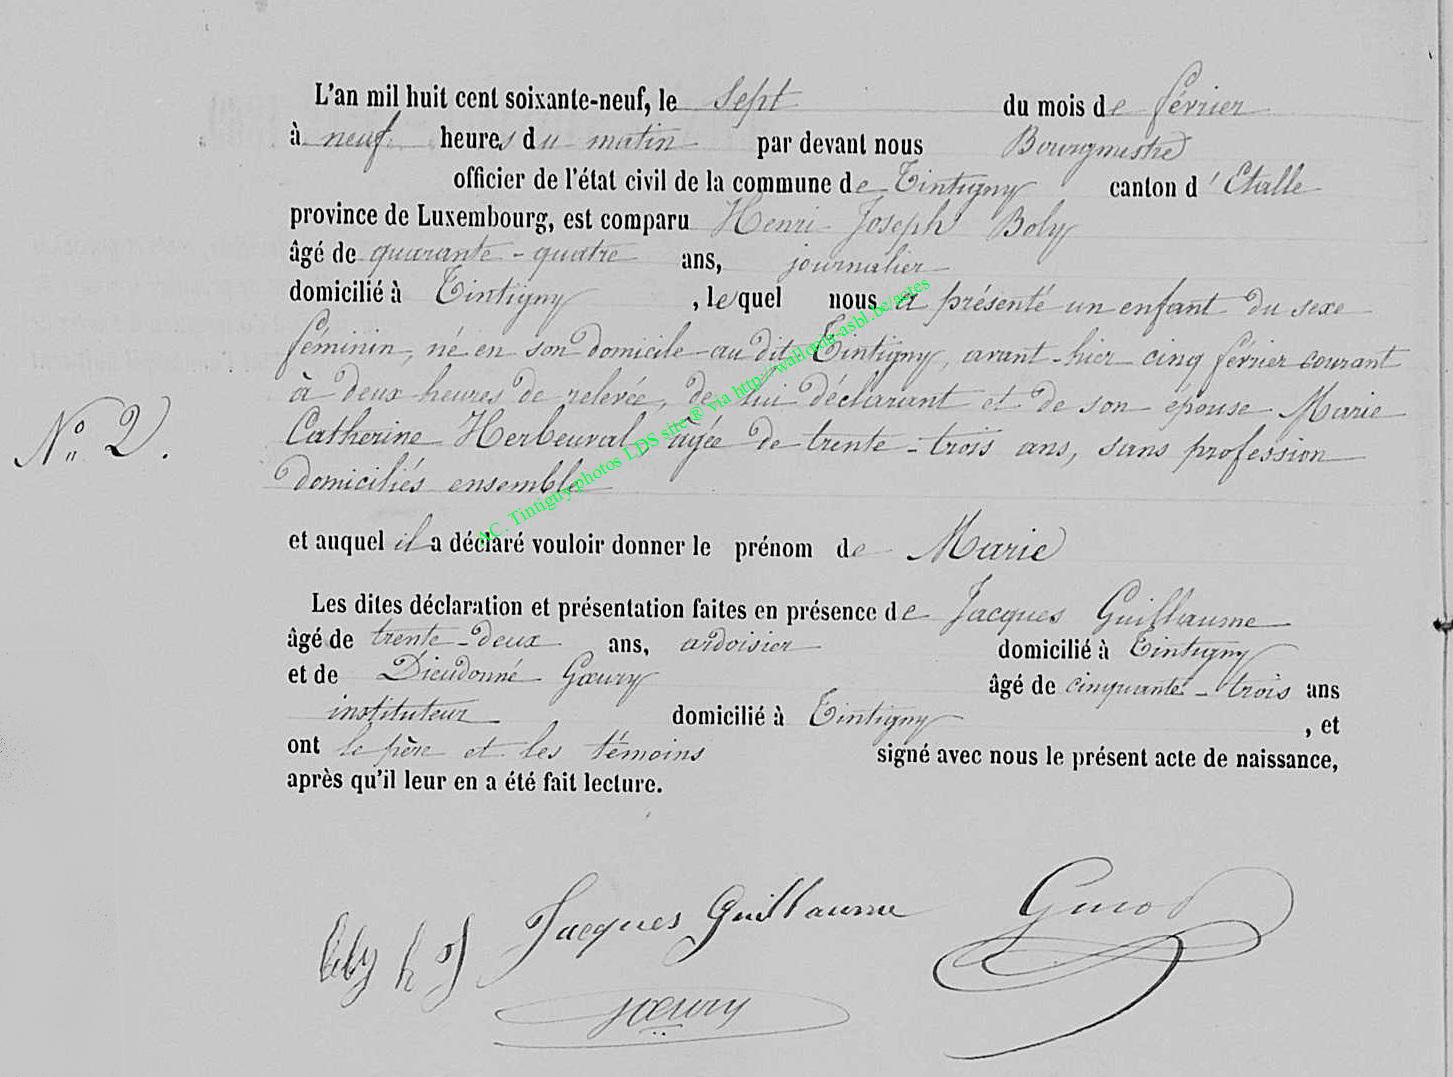 L'an mil huit cent soixante-neuf, le sept du mois de février
à neuf heures du matin par devant nous Bourgmestre
officier de l'état civil de la commune de Tintigny canton d'Etalle
province de Luxembourg, est comparu Henri Joseph Boly
âgé de quarante-quatre ans, journalier
domicilié à Tintigny, lequel nous a présenté un enfant du sexe
féminin, né en son domicile au dit Tintigny, avant-hier cinq février courant
à deux heures de relevée, de lui déclarant et de son épouse Marie
Catherine Herbeuval, âgée de trente-trois ans, sans profession
domiciliés ensemble
N° 2.
et auquel il a déclaré vouloir donner le prénom de Marie
Les dites déclaration et présentation faites en présence de Jacques Guillaume
âgé de trente-deux ans, ardoisier domicilié à Tintigny
et de Dieudonné Gœury âgé de cinquante-trois ans
instituteur domicilié à Tintigny, et
ont le père et les témoins signé avec nous le présent acte de naissance,
après qu'il leur en a été fait lecture.
Jacques Guillaume
Boly h J
Gœury
AC. Tintigny photos LDS site ® via http://wallonia-asbl.be/actes